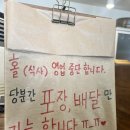 홀 (식사) 영업 중단 합니다.
당분간 포장, 배달 만
가능 합니다